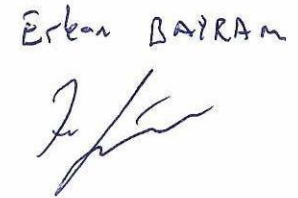 Erkan BAYRAM